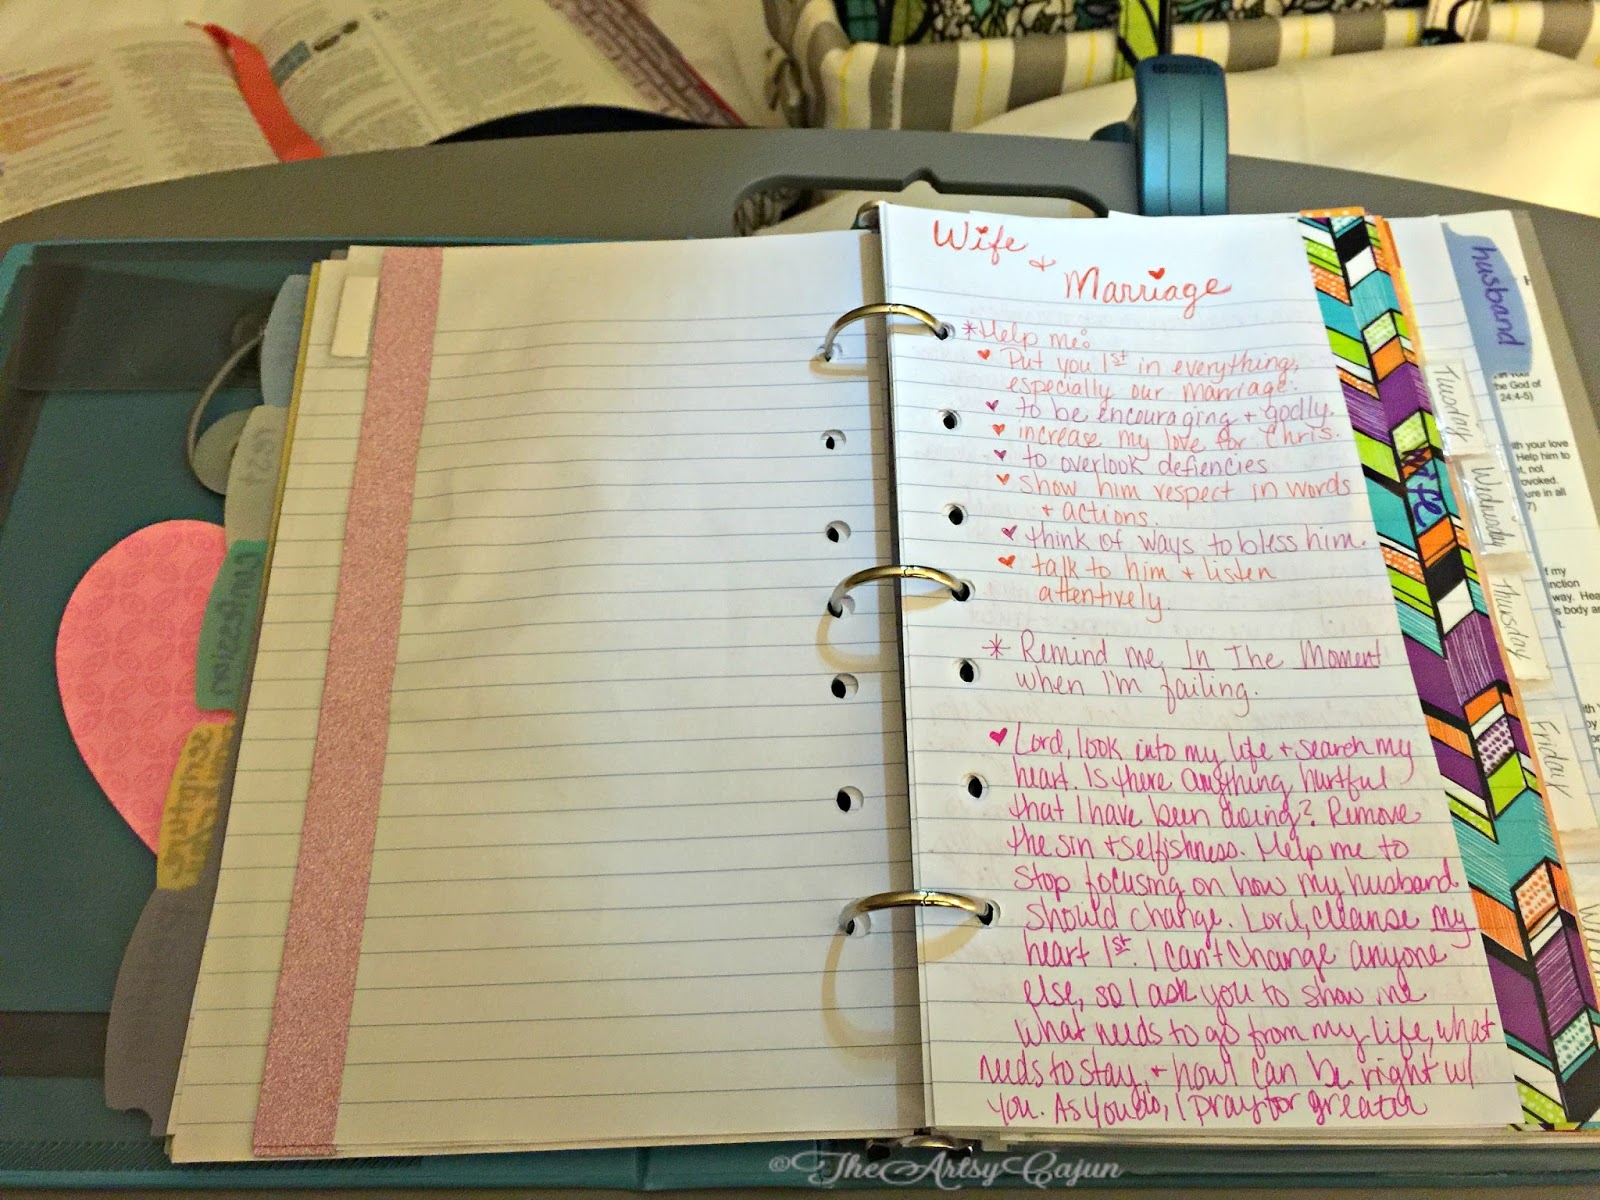 Wife
+
Marriage
*Help me:
Put you 1st in everything,
especially our marriage.
to be encouraging + godly.
increase my love for Chris.
to overlook defiencies
show him respect in words
+ actions.
think of ways to bless him.
talk to him + listen
attentively.
* Remind me, In The Moment
when I'm failing.
Lord, look into my life + search my
heart. Is there anything hurtful
that I have been doing? Remove
the sin + selfishness. Help me to
stop focusing on how my husband
should change. Lord, cleanse my
heart 1st. I can't change anyone
else, so I ask you to show me
what needs to go from my life, what
needs to stay, + how I can be right w/
you. As you do, I pray for greater
wife
husband
Tuesday
Wednesday
Thursday
Friday
the God of
24:4-5)
ith your love
Help him to
not
ovoked.
ure in all
7)
f my
nction
way. Hea
s body a
confession
scripture
©TheArtsyCajun